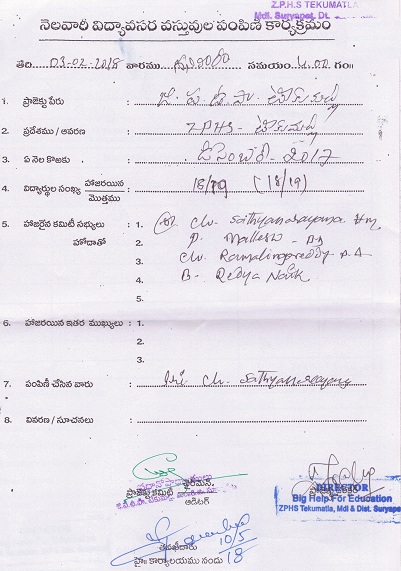 Z.P.H.S TEKUMATLA
Mdl. Suryapet, Dt.
నెలవారి విద్యావసర వస్తువుల పంపిణి కార్యక్రమం
తేది 03-02-2018 వారము శనివారం సమయం 4.00 గం॥
1. ప్రాజెక్టు పేరు : జి. ప. ఉ. పా. టేకుమట్ల
2. ప్రదేశము / ఆవరణ : ZPHS - టేకుమట్ల
3. ఏ నెల కొఱకు : డిసెంబర్ - 2017
4. విద్యార్థుల సంఖ్య హాజరయిన / మొత్తము : 18/19 (18/19)
5. హాజరైన కమిటీ సభ్యులు : 1. Ch. Sathyanarayana Hm
హోదాతో 2. P. Mallesh - P.A
3. Ch. Ramalingareddy - P.A
4. B. Redya Naik
5.
6. హాజరయిన ఇతర ముఖ్యులు : 1.
2.
3.
7. పంపిణీ చేసిన వారు : Sri. Ch. Sathyanarayana
8. వివరణ / సూచనలు :
ప్రాజెక్టు కమిటీ చైర్మన్.
ఆడిటగ్
DIRECTOR
Big Help For Education
ZPHS Tekumatla, Mdl & Dist. Suryape
10/5
18
తహై కార్యాలయము నందు